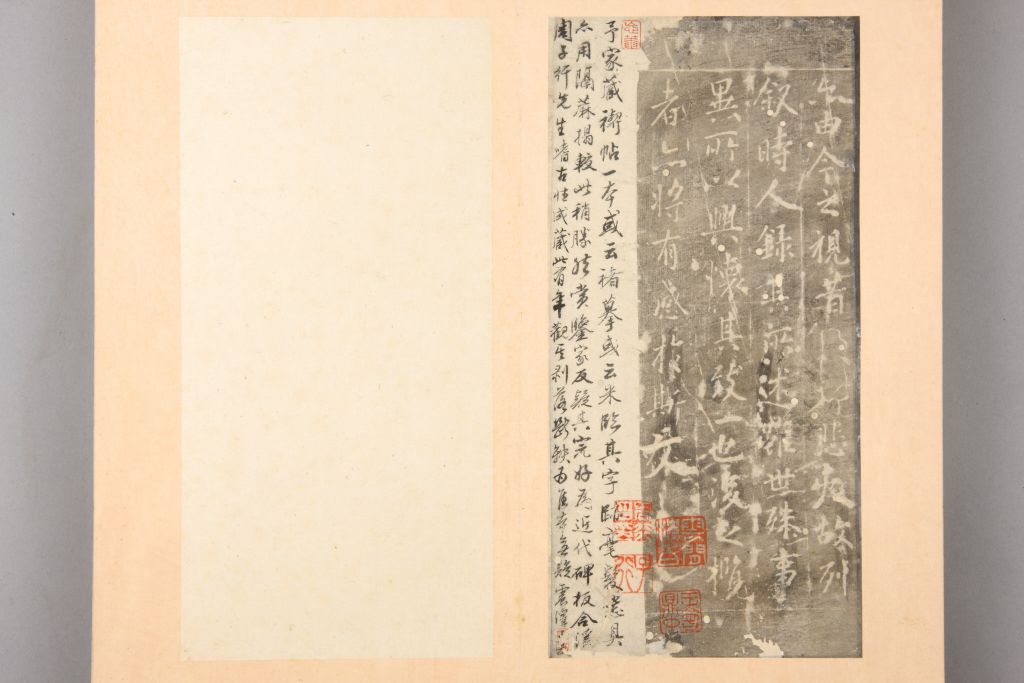 亦由今之視昔悲夫故列
敘時人錄其所述雖世殊事
異所以興懷其致一也後之攬
者亦將有感於斯文
予家藏禊帖一本或云褚摹或云米臨其字踪毫髮悉具
亦用隔麻搨較此稍勝然賞鑒家反疑其完好為近代碑板合溪
周子行先生嗜古性成藏此有年觀其剥落斷缺為舊本無疑